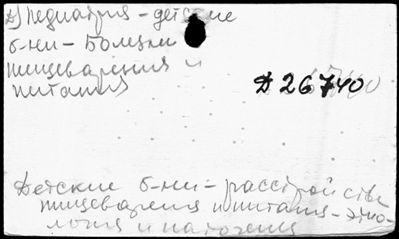 Д) Педиатрия - детские
б-ни - Болезни
пищеварения и
питания
Д 26740
Детские б-ни - расстройства
пищеварения и питания - этио-
логия и патогенез